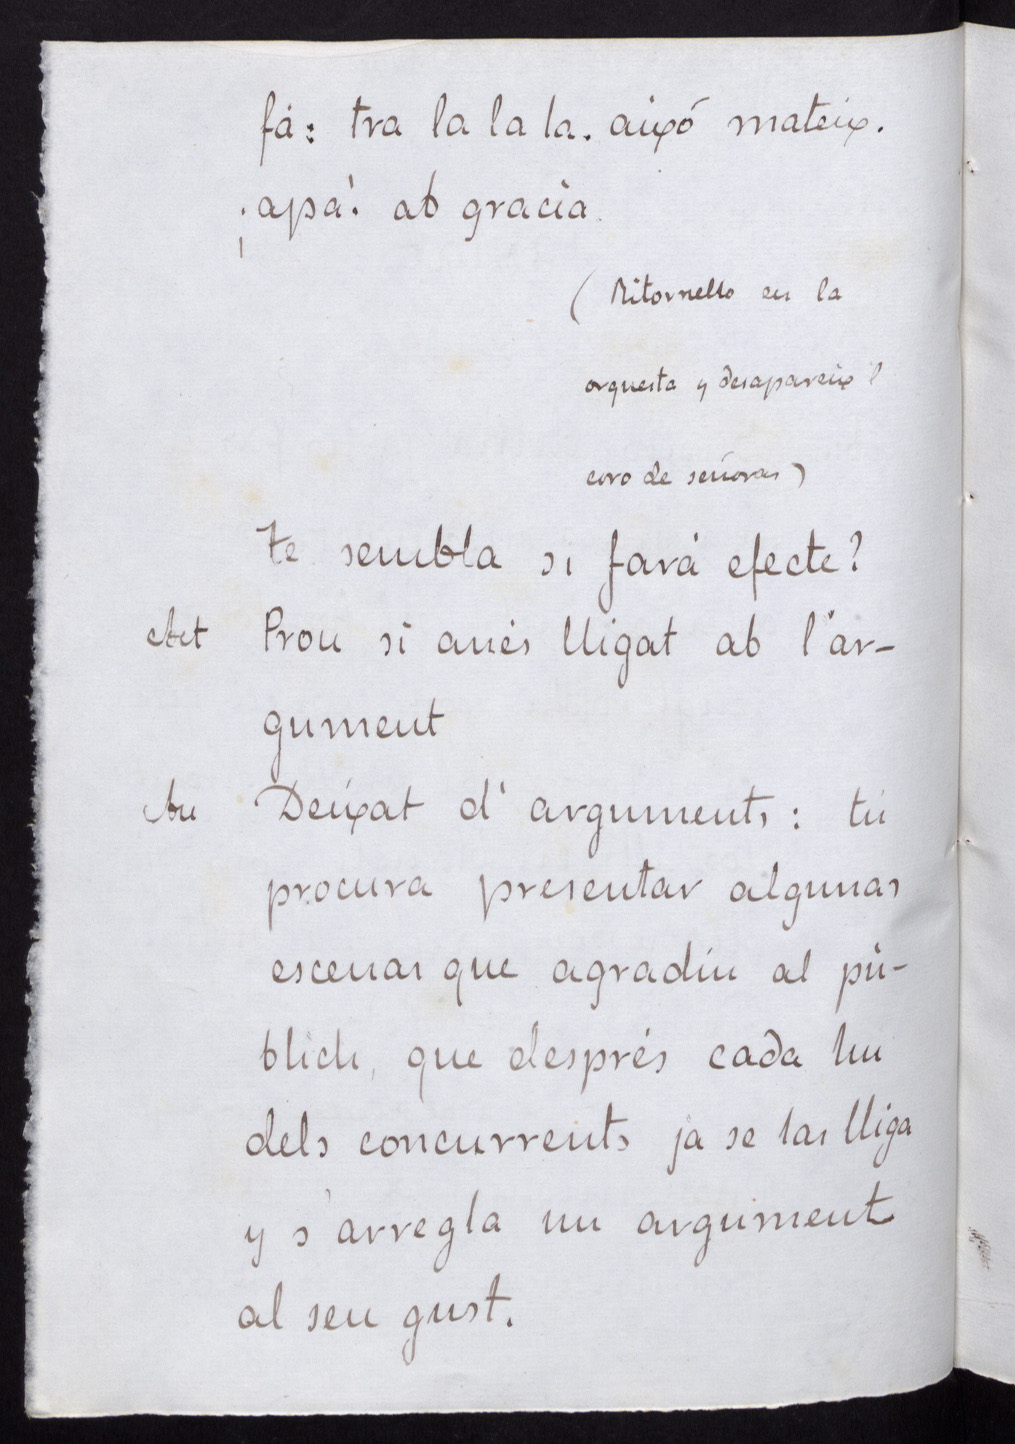 fá: tra la la la. aixó mateix.
¡apa! ab gracia
(Ritornello en la
orquesta y desapareix l
coro de señoras)
te sembla si fará efecte?
Act Prou si anés lligat ab l'ar-
gument
Au Deixat d'arguments: tú
procura presentar algunas
escenas que agradin al pú-
blich, que després cada hu
dels concurrents ja se las lliga
y s'arregla un argument
al seu gust.